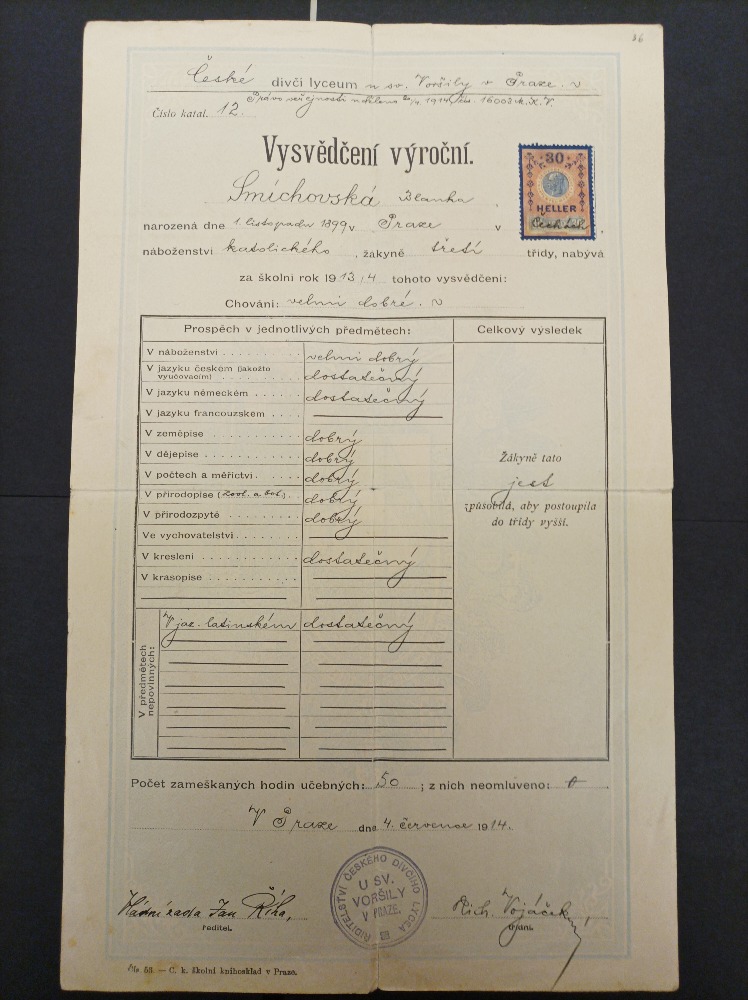 36
České divčí lyceum u sv. Voršily v Praze.
Právo veřejnosti uděleno 1914 16003 M.K.V.
Číslo katal. 12.
Vysvědčení výroční.
30
HELLER
Smíchovská Blanka
narozená dne 1. listopadu 1899 v Praze v
náboženství katolického, žákyně třetí třídy, nabývá
za školní rok 1913/4 tohoto vysvědčení:
Chování: velmi dobré.
Prospěch v jednotlivých předmětech: Celkový výsledek
V náboženství velmi dobrý
V jazyku českém (jakožto vyučovacím) dostatečný
V jazyku německém dostatečný
V jazyku francouzském
V zeměpise dobrý
V dějepise dobrý
V počtech a měřictví dobrý
V přírodopise (zool. a bot.) dobrý
V přírodozpytě dobrý
Ve vychovatelství
V kreslení dostatečný
V krasopise
Žákyně tato
jest
způsobilá, aby postoupila
do třídy vyšší.
V předmětech nepovinných:
V jaz. latinském dostatečný
Počet zameškaných hodin učebných: 50; z nich neomluveno: 0
V Praze dne 4. července 1914.
ŘIDITELSTVÍ ČESKÉHO DIVČÍHO LYCEA
U SV.
VORŠILY
V PRAZE.
Vládní rada Jan Říha,
ředitel.
Rich. Vojáček,
třídní.
Čís 53 — C. k. školní knihosklad v Praze.